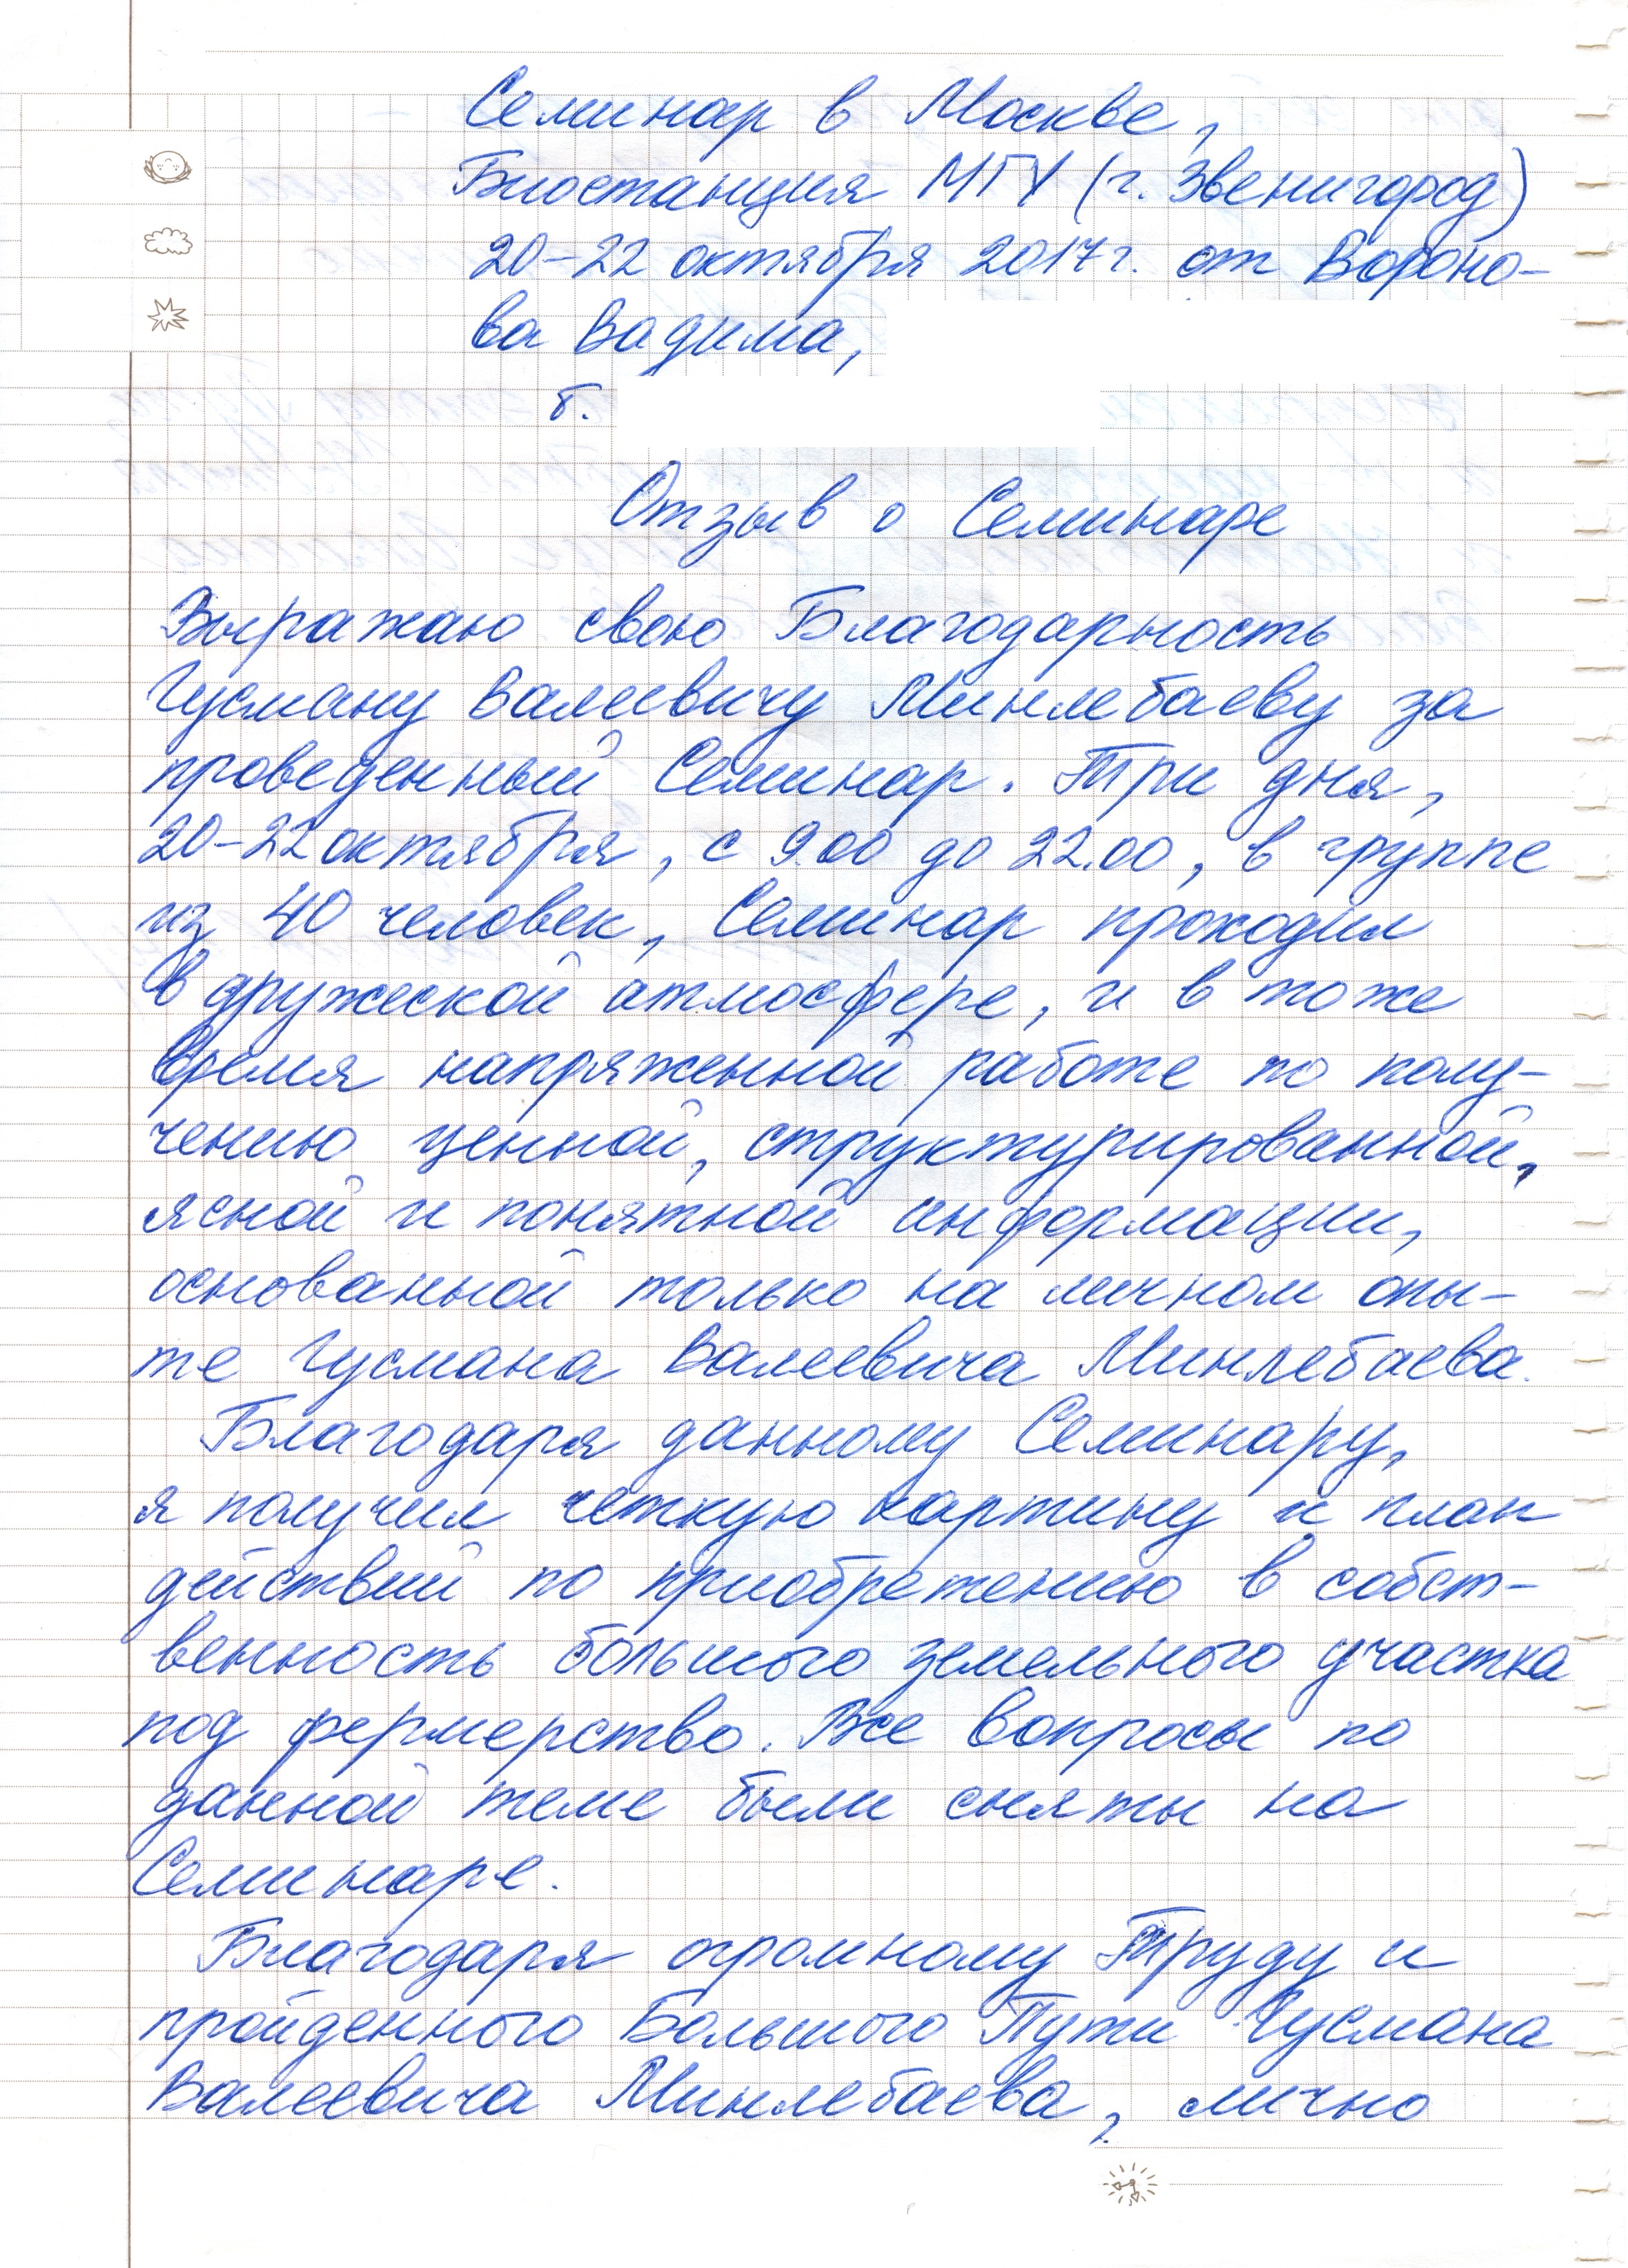 Семинар в Москве,
Биостанция МГУ (г. Звенигород)
20-22 октября 2017г. от Вороно-
ва Вадима,
т.
Отзыв о Семинаре
Выражаю свою Благодарность
Гусману Валеевичу Минлебаеву за
проведенный Семинар. Три дня,
20-22 октября, с 9.00 до 22.00, в группе
из 40 человек, Семинар проходил
в дружеской атмосфере, и в тоже
время напряженной работе по полу-
чению ценной, структурированной,
ясной и понятной информации,
основанной только на личном опы-
те Гусмана Валеевича Минлебаева.
Благодаря данному Семинару,
я получил четкую картину и план
действий по приобретению в собст-
венность большого земельного участка
под фермерство. Все вопросы по
данной теме были сняты на
Семинаре.
Благодаря огромному Труду и
пройденного Большого Пути Гусмана
Валеевича Минлебаева, лично